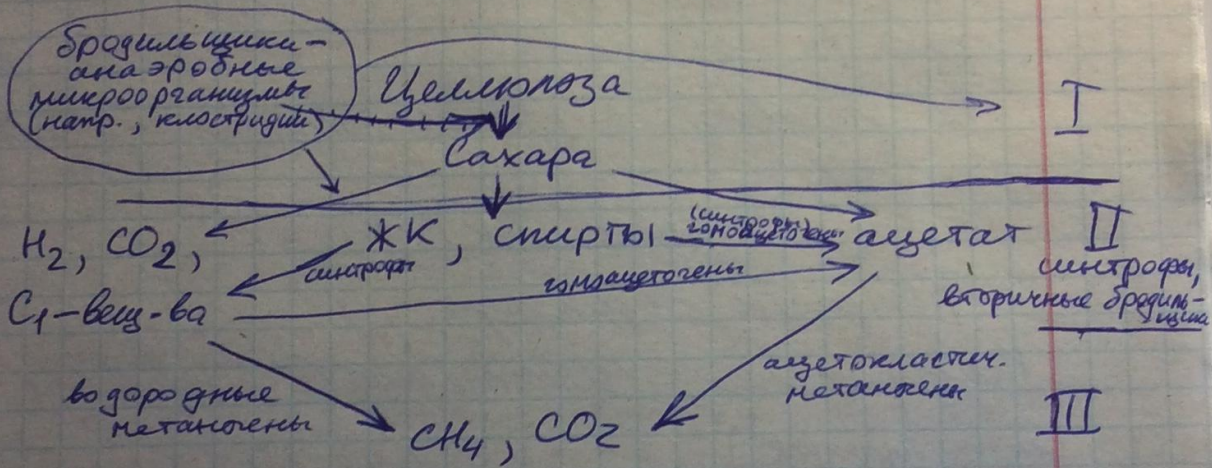 бродильщики-
анаэробные
микроорганизмы
(напр., клостридии)
Целлюлоза
I
Сахара
H2, CO2,
ЖК, спирты
(синтрофы)
гомоацетогены
ацетат
II
синтрофы
гомоацетогены
синтрофы,
вторичные бродиль-
щики
C1-вещ-ва
ацетокластич.
метаногены
водородные
метаногены
III
CH4, CO2